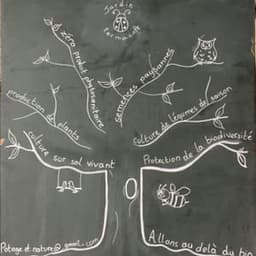 Jardin
zéro produit phytosanitaire
semences paysannes
production de plants
culture de légumes de saison
culture sur sol vivant
Protection de la biodiversité
Potage et nature@gmail.com
Allons au delà du bio